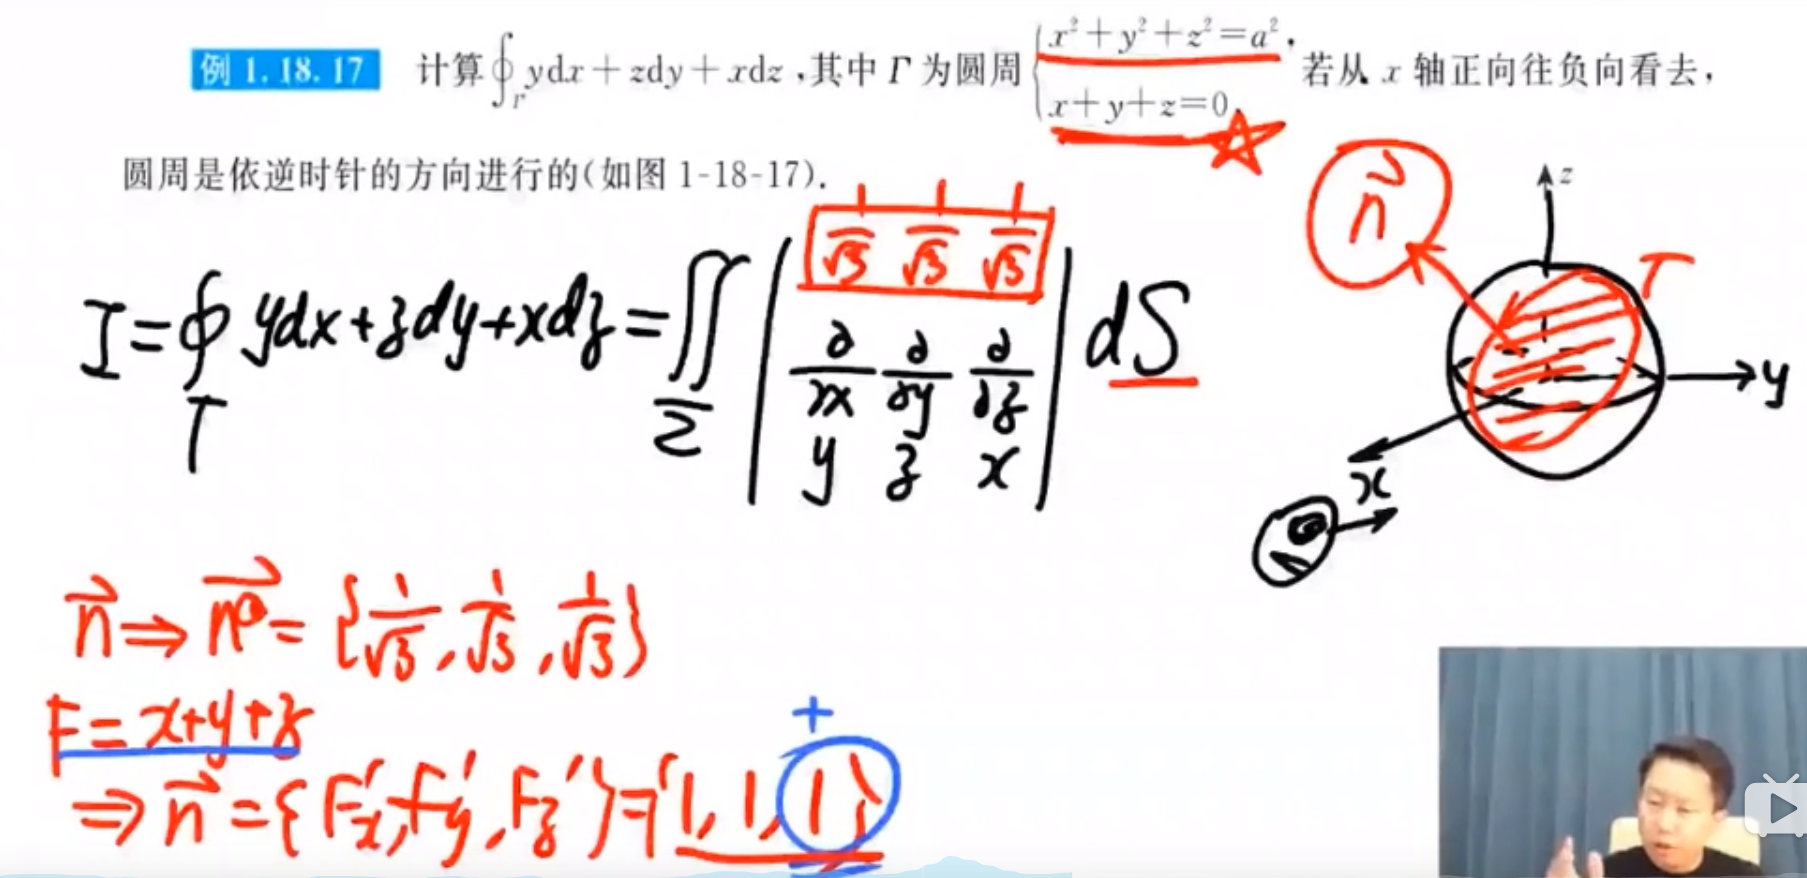 例 1.18.17 计算∮_Γ ydx+zdy+xdz,其中 Γ 为圆周 { x²+y²+z²=a², x+y+z=0, 若从 x 轴正向往负向看去,
圆周是依逆时针的方向进行的(如图 1-18-17).
I=∮_Γ ydx+zdy+xdz=∬_Σ | 1/√3 1/√3 1/√3 ; ∂/∂x ∂/∂y ∂/∂z ; y z x | dS
n⃗
z
Γ
y
x
n⃗ ⇒ n⃗°= {1/√3, 1/√3, 1/√3}
F=x+y+z
+
⇒ n⃗={F'x, F'y, F'z}={1, 1, 1}